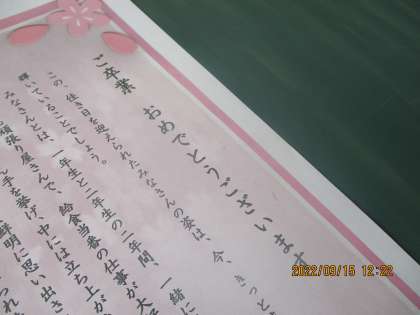 ご卒業 おめでとうございます
この、佳き日を迎えられたみなさんの姿は、今、きっと
輝いていることでしょう。
みなさんとは、一年生と二年生の二年間、一緒に
頑張り屋さんで、給食当番の仕事が大
手を挙げ、中には立ち上が
鮮明に思い出さ
られ
2022/09/15 12:22